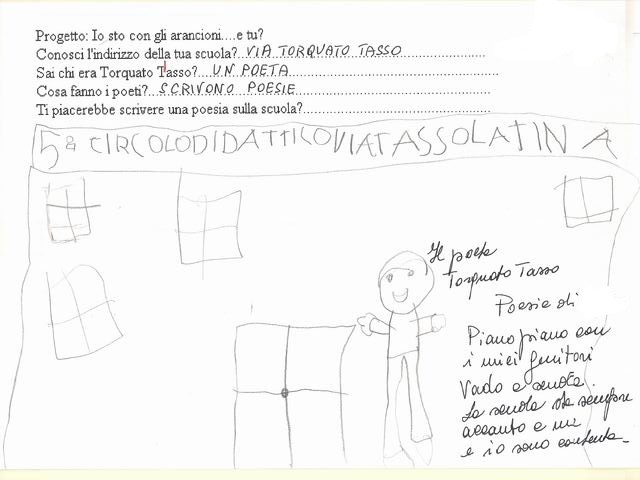 Progetto: Io sto con gli arancioni....e tu?
Conosci l'indirizzo della tua scuola? VIA TORQUATO TASSO
Sai chi era Torquato Tasso? UN POETA
Cosa fanno i poeti? SCRIVONO POESIE
Ti piacerebbe scrivere una poesia sulla scuola?
5º CIRCOLO DIDATTICO VIA TASSO LATINA
Il poeta
Torquato Tasso
Poesia di
Piano piano con
i miei genitori
Vado a scuola.
La scuola sta sempre
accanto a me
e io sono contenta